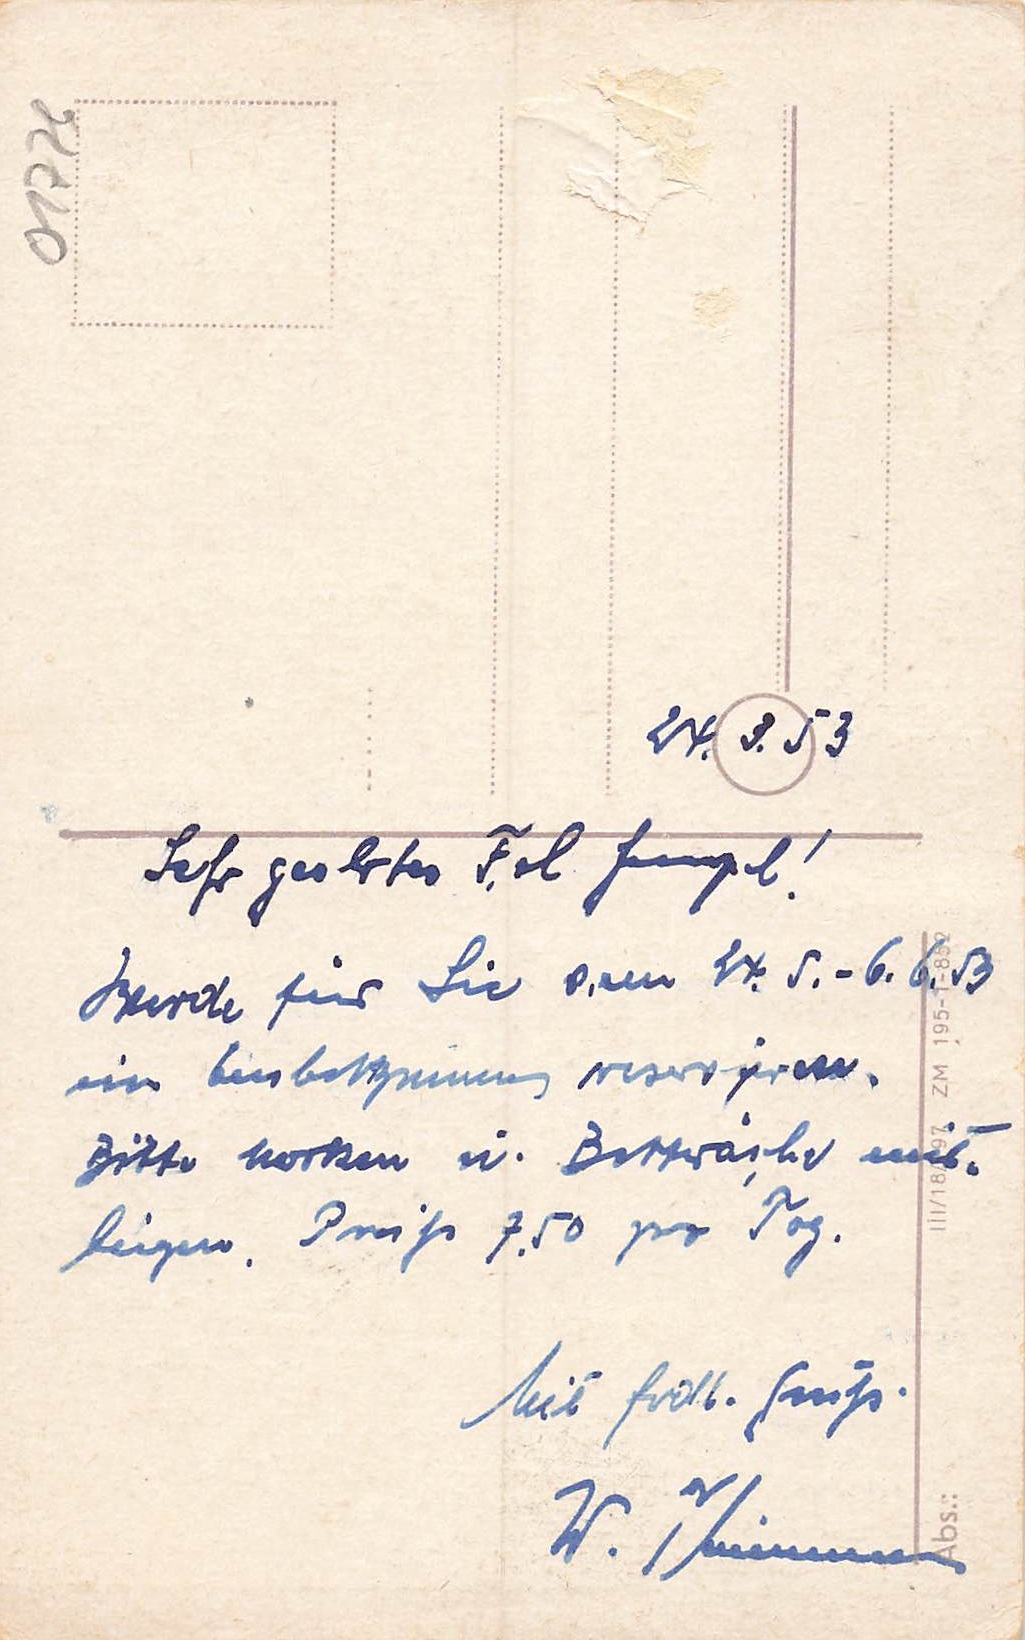 01776
24. 3. 53
Sehr geehrtes Frl
Werde für Sie vom 24. 5. - 6. 6. 53
ein reservieren.
Bitte Marken u. Bettwäsche mit-
bringen. Preiß 7.50 pro Tag.
Mit frdl. Gruß.
W.
III/18/197 ZM 195-1-852
Abs.: